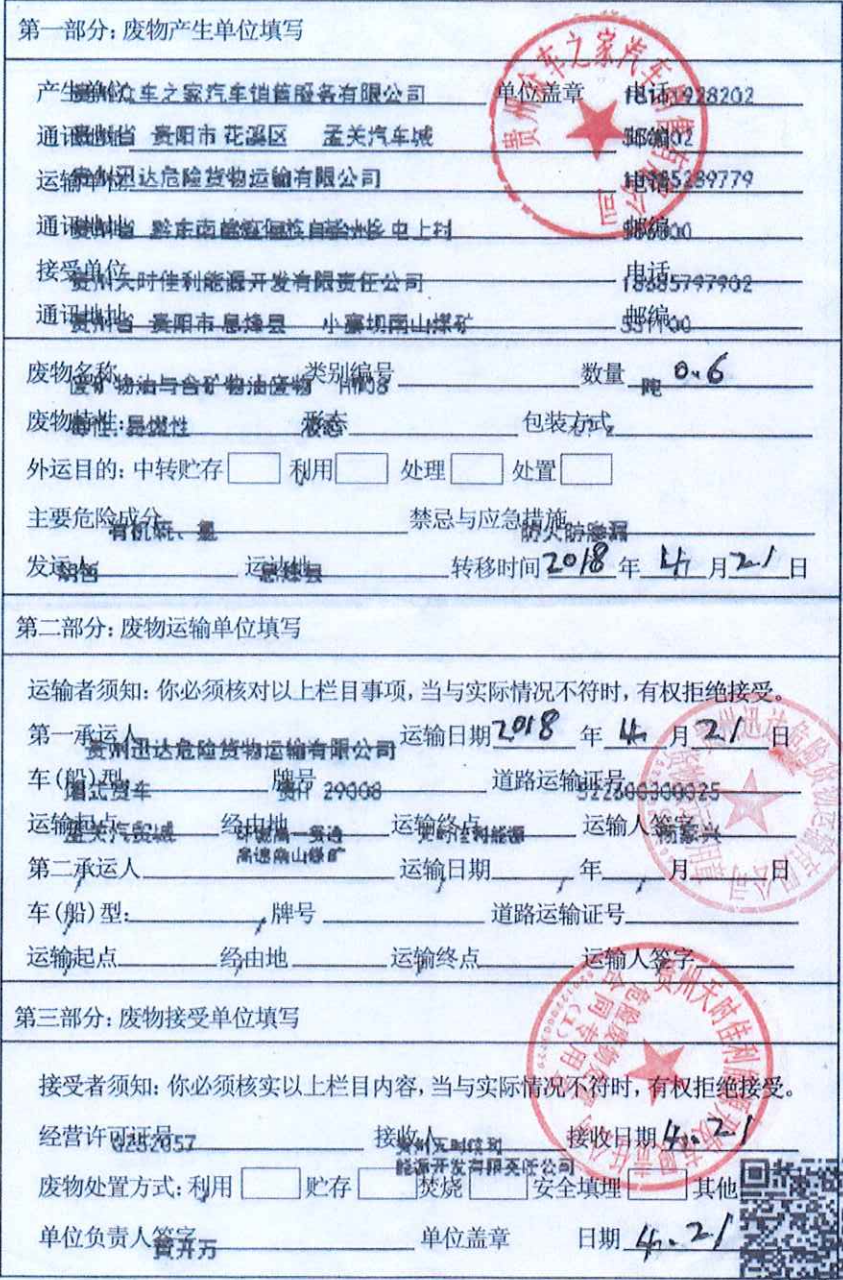 第一部分：废物产生单位填写
产生单位 贵州众车之家汽车销售服务有限公司 单位盖章 电话
通讯地址 贵州省 贵阳市 花溪区 孟关汽车城 邮编
运输单位 贵州迅达危险货物运输有限公司 电话
通讯地址 贵州省 中上村 邮编
接受单位 贵州天时佳利能源开发有限责任公司 电话 18685797902
通讯地址 贵州省 贵阳市 息烽县 小寨坝南山煤矿 邮编
废物名称 废矿物油与含矿物油废物 类别编号 HW08 数量 吨 0.6
废物特性：毒性，易燃性 形态 液态 包装方式
外运目的：中转贮存 利用 处理 处置
主要危险成分 有机 禁忌与应急措施 防火防渗漏
发运人 运达地 息烽县 转移时间 2018 年 4 月 21 日
第二部分：废物运输单位填写
运输者须知：你必须核对以上栏目事项，当与实际情况不符时，有权拒绝接受。
第一承运人 贵州迅达危险货物运输有限公司 运输日期 2018 年 4 月 21 日
车(船)型 货车 牌号 29008 道路运输证号 522600300025
运输起点 孟关汽贸城 经由地 运输终点 天时佳利能源 运输人签字
第二承运人 运输日期 年 月 日
车(船)型： 牌号 道路运输证号
运输起点 经由地 运输终点 运输人签字
第三部分：废物接受单位填写
接受者须知：你必须核实以上栏目内容，当与实际情况不符时，有权拒绝接受。
经营许可证号 GZ52057 接收人 贵州天时佳利 接收日期 4.21
能源开发有限责任公司
废物处置方式：利用 贮存 焚烧 安全填埋 其他
单位负责人签字 黄开万 单位盖章 日期 4.21